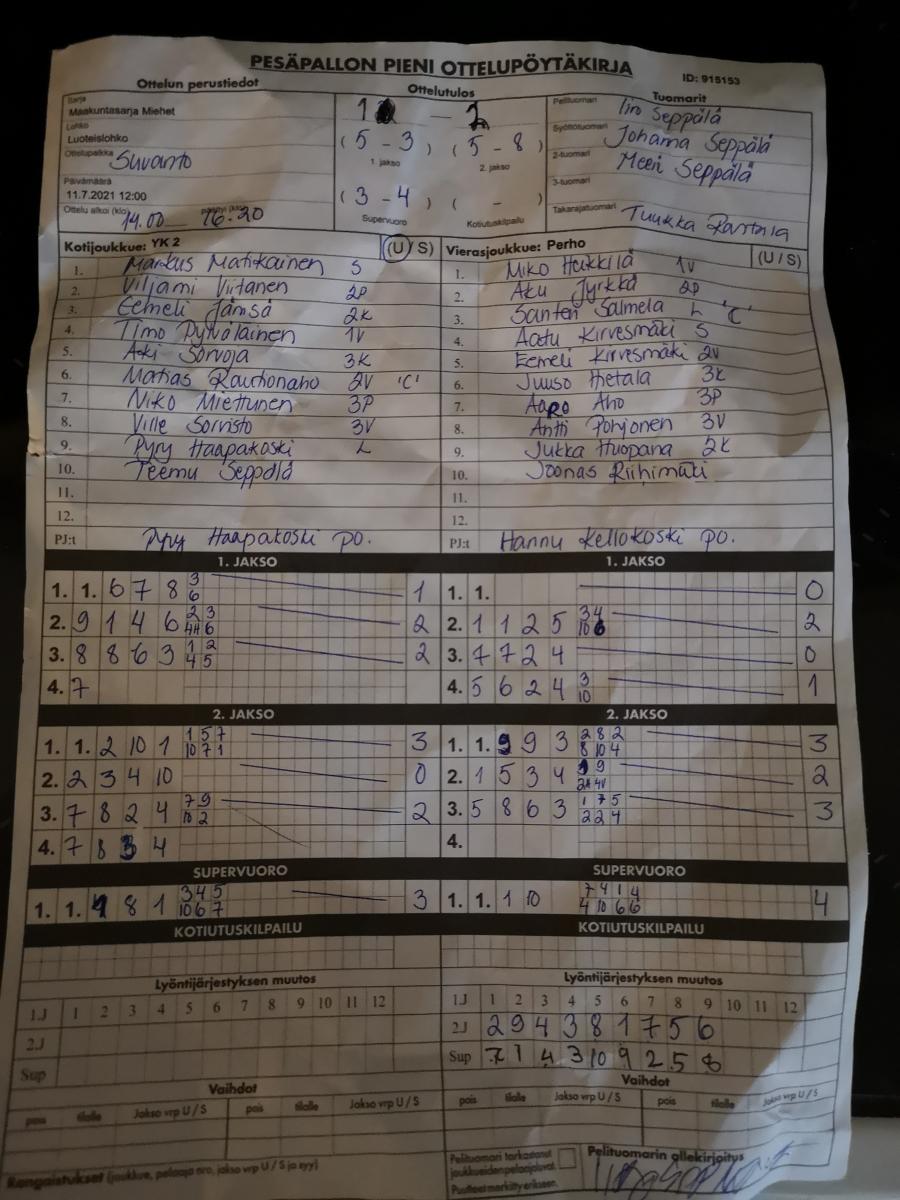 PESÄPALLON PIENI OTTELUPÖYTÄKIRJA
ID: 915153
Ottelun perustiedot
Sarja
Maakuntasarja Miehet
Lohko
Luoteislohko
Ottelupaikka Suvanto
Päivämäärä
11.7.2021 12:00
Ottelu alkoi (klo) 14.00 päättyi (klo) 16.20
Ottelutulos
1 - 2
( 5 - 3 ) ( 5 - 8 )
1. jakso 2. jakso
( 3 - 4 ) ( - )
Supervuoro Kotiutuskilpailu
Tuomarit
Pelituomari Iiro Seppälä
Syöttötuomari Johanna Seppälä
2-tuomari Meeri Seppälä
3-tuomari
Takarajatuomari Tuukka Rautala
Kotijoukkue: YK 2 (U / S)
1. Markus Matikainen S
2. Viljami Virtanen 2P
3. Eemeli Jämsä 2K
4. Timo Pyrväläinen 1V
5. Aki Sorvoja 3K
6. Matias Rautionaho 2V 'C'
7. Niko Miettunen 3P
8. Ville Sorvisto 3V
9. Pyry Haapakoski L
10. Teemu Seppälä
11.
12.
PJ:t Pyry Haapakoski PO.
Vierasjoukkue: Perho (U / S)
1. Miko Hakkila 1V
2. Aku Jyrkkä 2P
3. Santeri Salmela L 'C'
4. Aatu Kirvesmäki S
5. Eemeli Kirvesmäki 2V
6. Juuso Hietala 3K
7. Aaro Aho 3P
8. Antti Pohjonen 3V
9. Jukka Huopana 2K
10. Joonas Riihimäki
11.
12.
PJ:t Hannu Kellokoski PO.
1. JAKSO
1. 1. 6 7 8 3 1
6
2. 9 1 4 6 2 3 2
4H 6
3. 8 8 6 3 1 2 2
4 5
4. 7
1. JAKSO
1. 1. 0
2. 1 1 2 5 3 4 2
10 6
3. 7 7 2 4 0
4. 5 6 2 4 3 1
10
2. JAKSO
1. 1. 2 10 1 1 5 7 3
10 7 1
2. 2 3 4 10 0
3. 7 8 2 4 7 9 2
10 2
4. 7 8 3 4
2. JAKSO
1. 1. 9 9 3 2 8 2 3
8 10 4
2. 1 5 3 4 9 2
3. 5 8 6 3 1 7 5 3
2 2 4
4.
SUPERVUORO
1. 1. 9 8 1 3 4 5 3
10 6 7
SUPERVUORO
1. 1. 1 10 7 4 1 4 4
4 10 6 6
KOTIUTUSKILPAILU
KOTIUTUSKILPAILU
Lyöntijärjestyksen muutos
1.J 1 2 3 4 5 6 7 8 9 10 11 12
2.J
Sup
Lyöntijärjestyksen muutos
1.J 1 2 3 4 5 6 7 8 9 10 11 12
2.J 2 9 4 3 8 1 7 5 6
Sup 7 1 4 3 10 9 2 5 8
Vaihdot
pois tilalle Jakso vrp U / S pois tilalle Jakso vrp U / S
Vaihdot
pois tilalle Jakso vrp U / S pois tilalle Jakso vrp U / S
Rangaistukset (joukkue, pelaaja nro, jakso vrp U / S ja syy)
Pelituomari tarkastanut
joukkueiden pelaajaluvat.
Puutteet merkitty erikseen.
Pelituomarin allekirjoitus